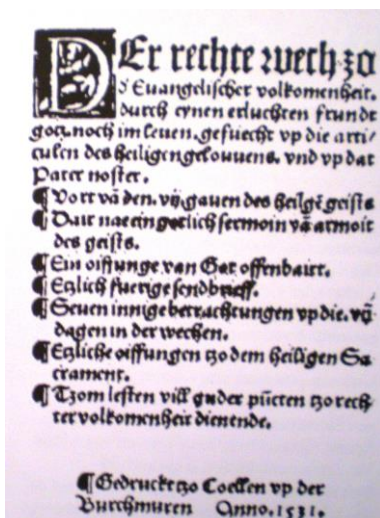 DEr rechte wech zo
d' Euangelischer volkomenheit.
durch eynen erluchten frundt
gotz. noch im leuen. gefuecht vp die arti/
culen des heiligen gelouuens. vnd vp dat
Pater noster.
¶ Vort vā den. vij. gauen des heilgē geists
¶ Dair nae ein gotlich sermoin vā armoit
des geists.
¶ Ein oiffunge van Got offenbairt.
¶ Etzlich fuerige sendbrieff.
¶ Seuen innige betrachtungen vp die. vij
dagen in der wechen.
¶ Etzliche oiffungen tzo dem heiligen Sa
crament.
¶ Tzom lesten vill guder pūcten tzo rech/
ter volkomenheit dienende.
¶ Gedruckt tzo Coellen vp der
Burchmuren Anno. 1531.